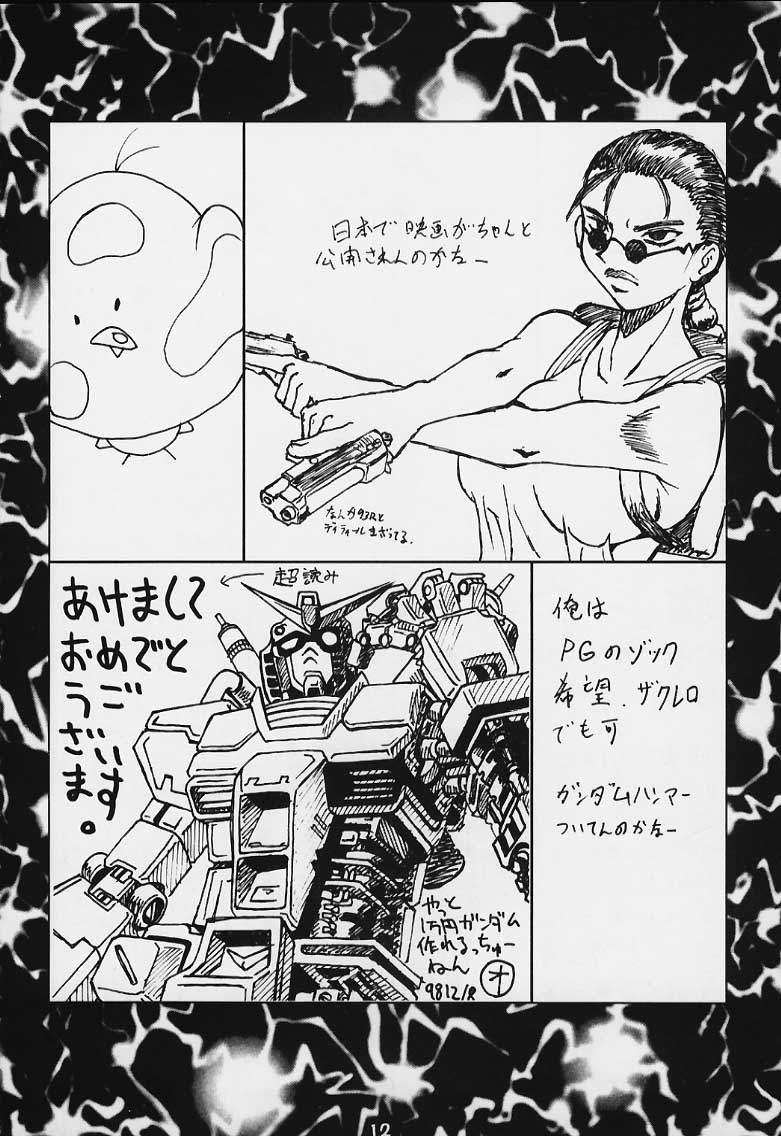 日本で映画がちゃんと
公開されんのかなー
なんか93Rと
ディティールまざってる。
超読み
あけまして
おめでと
うござ
ざいま
す。
俺は
PGのゾック
希望、ザクレロ
でも可
ガンダムハンマー
ついてんのかなー
やっと
1万円ガンダム
作れるっちゅー
ねん
オ
9812/R
12